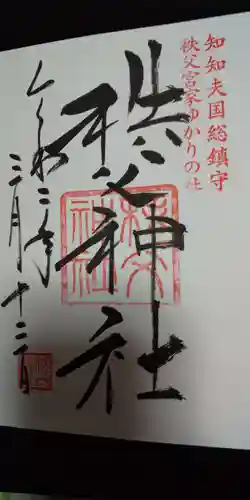 知知夫国総鎮守
秩父宮家ゆかりの社
秩父神社
令和二年
三月十二日